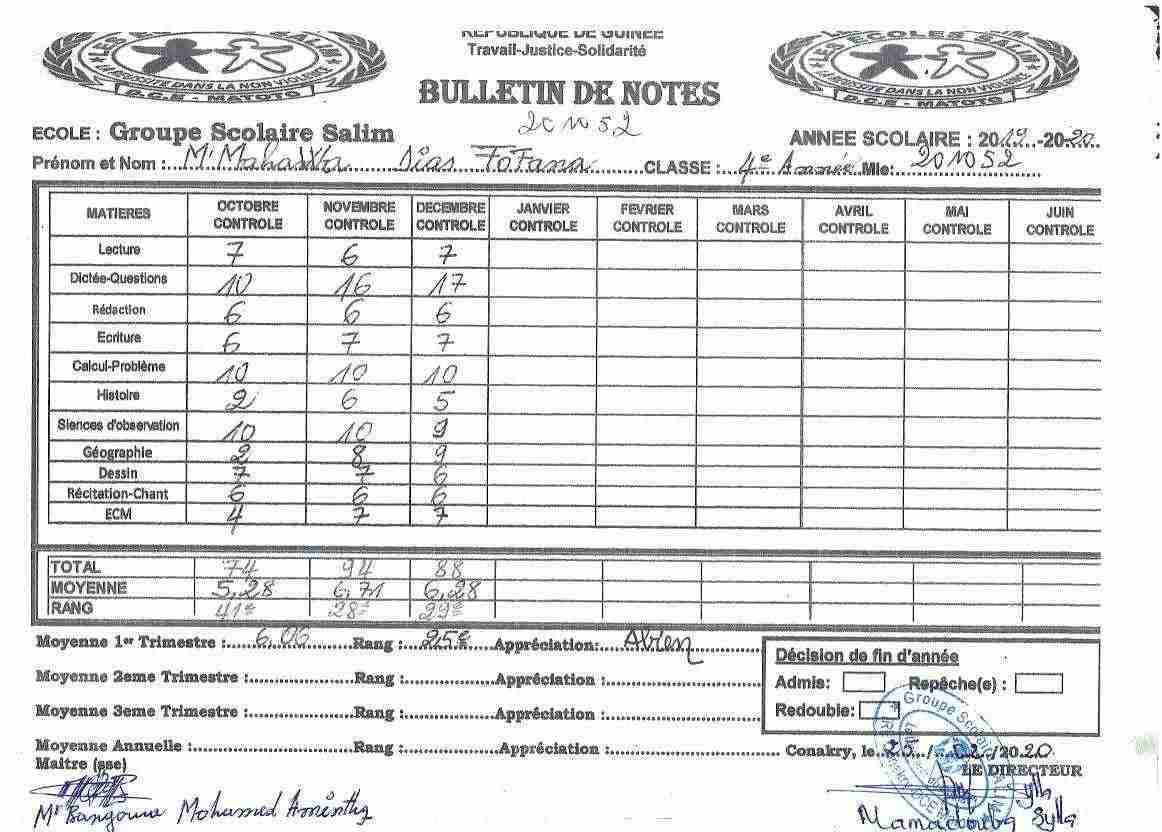 REPUBLIQUE DE GUINEE
Travail-Justice-Solidarité
LES ECOLES SALIM
LA REUSSITE DANS LA NON VIOLENCE
D.C.E - MATOTO
LES ECOLES SALIM
LA REUSSITE DANS LA NON VIOLENCE
D.C.E - MATOTO
BULLETIN DE NOTES
201052
ECOLE : Groupe Scolaire Salim ANNEE SCOLAIRE : 2019-2020
Prénom et Nom : Mahawa Dias Fofana CLASSE : 4e Année Mle: 201052
MATIERES OCTOBRE CONTROLE NOVEMBRE CONTROLE DECEMBRE CONTROLE JANVIER CONTROLE FEVRIER CONTROLE MARS CONTROLE AVRIL CONTROLE MAI CONTROLE JUIN CONTROLE
Lecture 7 6 7
Dictée-Questions 10 16 17
Rédaction 6 6 6
Ecriture 6 7 7
Calcul-Problème 10 10 10
Histoire 2 6 5
Siences d'observation 10 10 9
Géographie 2 8 9
Dessin 7 7 6
Récitation-Chant 6 6 6
ECM 4 7 7
TOTAL 74 94 88
MOYENNE 5,28 6,71 6,28
RANG 41e 28e 29e
Moyenne 1er Trimestre : 6,06 Rang : 25e Appréciation: A.Bien
Moyenne 2eme Trimestre : Rang : Appréciation :
Moyenne 3eme Trimestre : Rang : Appréciation :
Moyenne Annuelle : Rang : Appréciation :
Décision de fin d'année
Admis: Repêche(e) :
Redouble:
Conakry, le 25/02/2020
Maitre (sse) LE DIRECTEUR
Mr Bangoura Mohamed
Sylla
Mamadouba Sylla
Groupe Scolaire SALIM